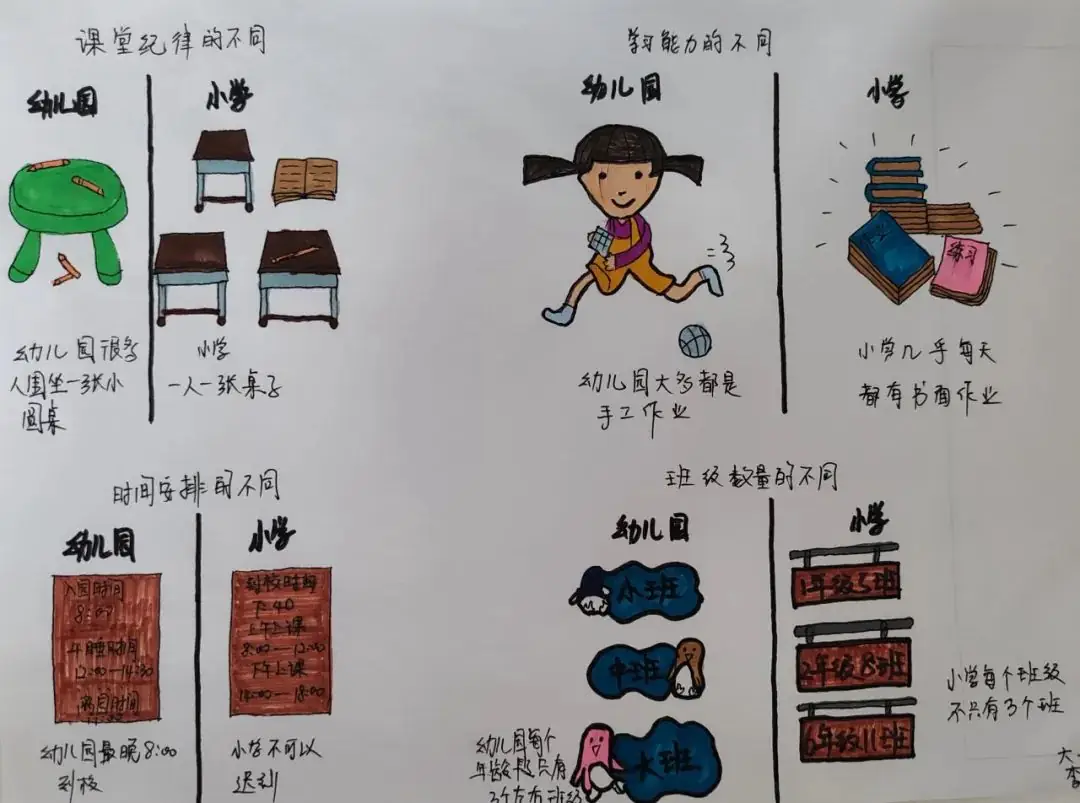 课堂纪律的不同
幼儿园
小学
幼儿园很多
人围坐一张小
圆桌
小学
一人一张桌子
学习能力的不同
幼儿园
小学
练习
幼儿园大多都是
手工作业
小学几乎每天
都有书面作业
时间安排的不同
幼儿园
小学
入园时间
8:00
午睡时间
12:00—14:30
离园时间
到校时间
7:40
上午上课
8:00—12:00
下午上课
14:00—18:00
幼儿园最晚8:00
到校
小学不可以
迟到
班级数量的不同
幼儿园
小学
小班
中班
大班
幼儿园每个
年龄段只有
3个左右班级
1年级5班
2年级8班
6年级11班
小学每个班级
不只有3个班